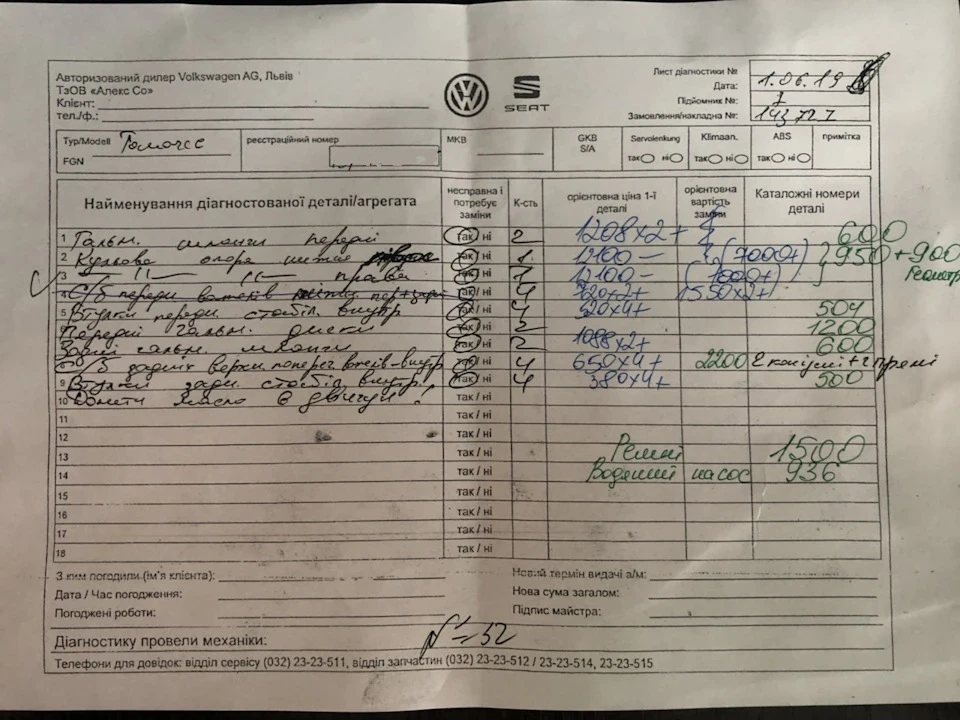 Авторизований дилер Volkswagen AG, Львів
ТзОВ «Алекс Со»
Клієнт:
тел./ф.:
SEAT
Лист діагностики №
Дата: 1.06.19
Підйомник №: 7
Замовлення/накладна №: 143727
Тур/Modell
FGN
реєстраційний номер
МКВ
GKB S/A
Servolenkung так ні
Klimaan. так ні
ABS так ні
примітка
Найменування діагностованої деталі/агрегата несправна і потребує заміни К-сть орієнтовна ціна 1-ї деталі орієнтовна вартість заміни Каталожні номери деталі
1 Гальм. шланги передні так/ ні 2 1208x2+ 600
2 Кульова опора нижня так/ ні 1 12100- (7000+) 950+900
3 -"- -"- права так/ ні 1 12100- (7000+)
4 С/б передн важелів так/ ні 4 720x2+ 1550x2+
5 Втулки передн. стабіл. внутр так/ ні 4 520x4+ 504
6 Передні гальм. диски так/ ні 2 1200
7 Задні гальм. шланги так/ ні 2 1088x2+ 600
8 С/б задніх верхн. попереч. важелів-внутр так/ ні 4 650x4+ 2200
9 Втулки задн. стабіл внутр! так/ ні 4 380x4+ 500
10 Долити масло в двигун! так / ні
11 так / ні
12 так / ні
13 так / ні Ремні 1500
14 так / ні Водяний насос 936
15 так / ні
16 так / ні
17 так / ні
18 так / ні
З ким погодили (ім'я клієнта):
Дата / Час погодження:
Погоджені роботи:
Новий термін видачі а/м:
Нова сума загалом:
Підпис майстра:
Діагностику провели механіки:
Телефони для довідок: відділ сервісу (032) 23-23-511, відділ запчастин (032) 23-23-512 / 23-23-514, 23-23-515